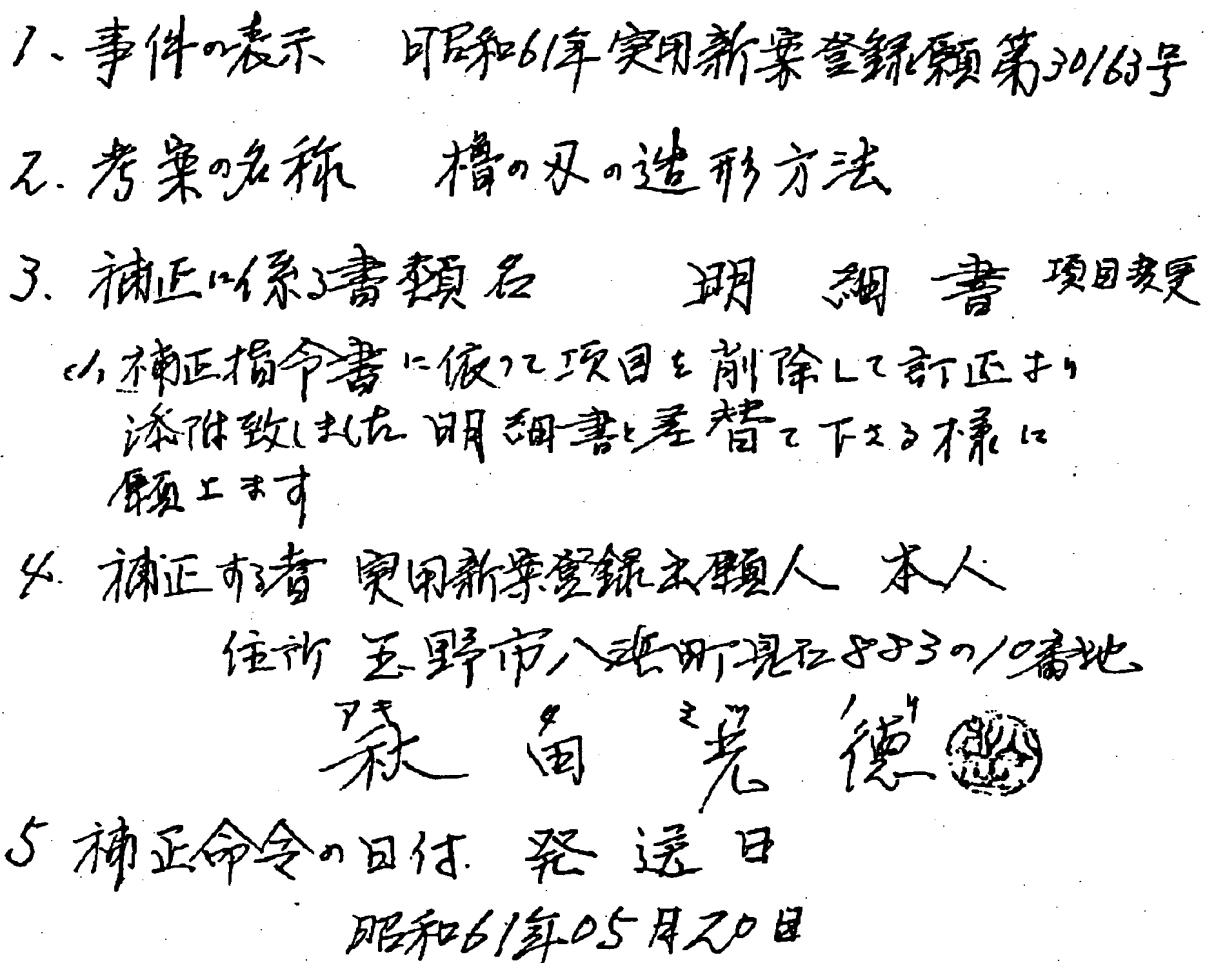 1、事件の表示 昭和61年実用新案登録願第30163号
2. 考案の名称 櫓の刃の造形方法
3. 補正に係る書類名 明細書 項目変更
(1) 補正指令書に依って項目を削除して訂正より
添附致しました明細書と差替て下さる様に
願上ます
4. 補正する者 実用新案登録出願人 本人
住所 玉野市八浜町見石883の10番地
アキ タ ミツ ノリ
秋田光徳
5 補正命令の日付. 発送日
昭和61年05月20日